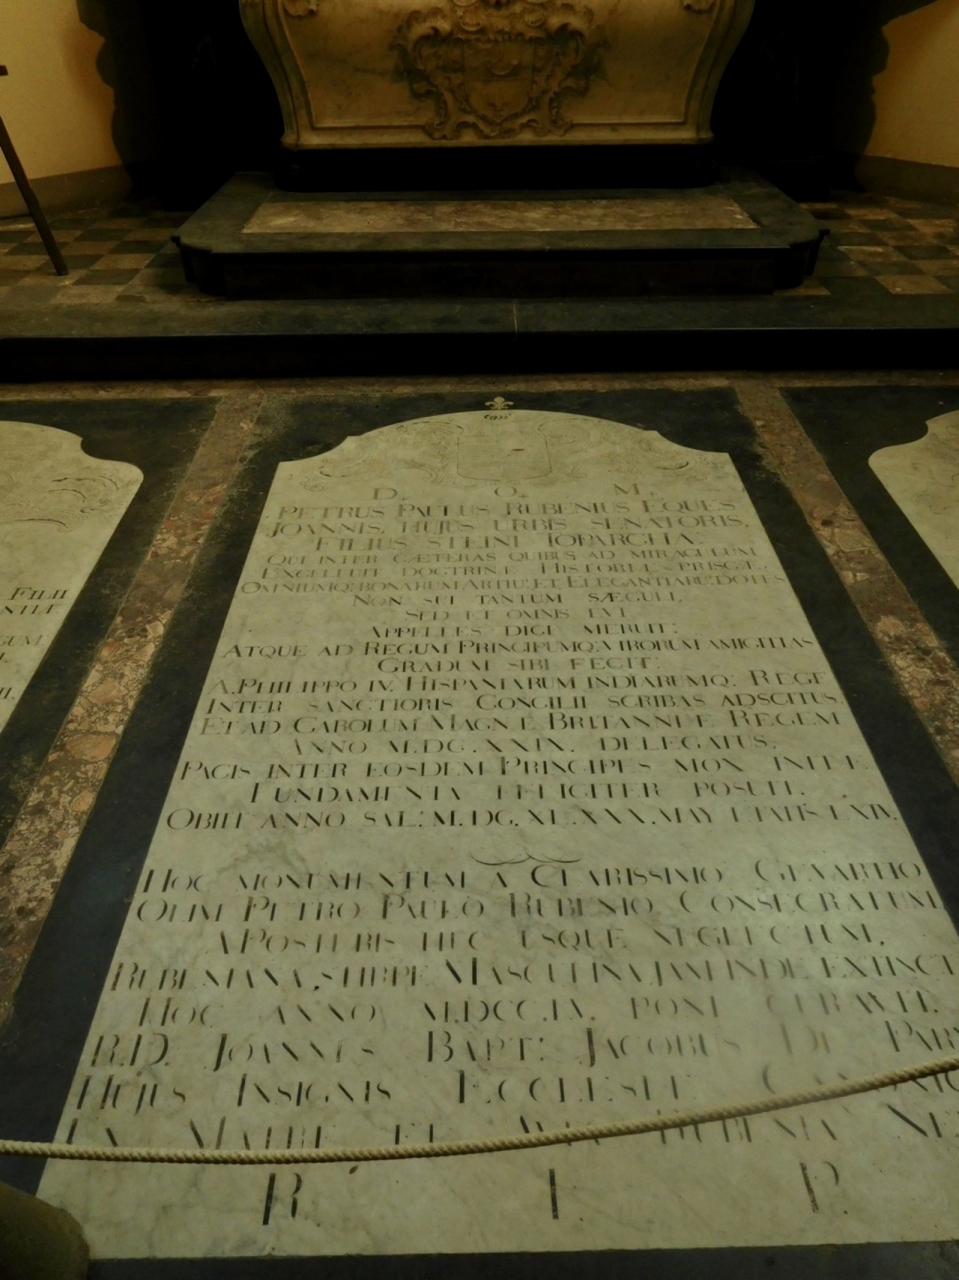 D. O. M.
PETRUS PAULUS RUBENIUS EQUES
JOANNIS, HUJUS URBIS SENATORIS,
FILIUS STEINI TOPARCHA:
QUI INTER CÆTERAS QUIBUS AD MIRACULUM
EXCELLUIT DOCTRINÆ HISTORIÆ PRISCÆ,
OMNIUMQ: BONARUM ARTIU: ET ELEGANTIARU: DOTES
NON SUI TANTUM SÆCULI,
SED ET OMNIS ÆVI
APPELLES DICI MERUIT:
ATQUE AD REGUM PRINCIPUMQ: VIRORUM AMICITIAS
GRADUM SIBI FECIT:
A. PHILIPPO IV. HISPANIARUM INDIARUMQ: REGE
INTER SANCTIORIS CONCILII SCRIBAS ADSCITUS,
ET AD CAROLUM MAGNÆ BRITANNIÆ REGEM
ANNO M.DC.XXIX. DELEGATUS,
PACIS INTER EOSDEM PRINCIPES MOX INITÆ
FUNDAMENTA FELICITER POSUIT.
OBIIT ANNO SAL: M.DC.XL.XXX.MAY ÆTATIS LXIV.
HOC MONUMENTUM A CLARISSIMO GEVARTIO
OLIM PETRO PAULO RUBENIO CONSECRATUM
A POSTERIS HUC USQUE NEGLECTUM,
RUBENIANA STIRPE MASCULINA JAM INDE EXTINCTA
HOC ANNO M.DCC.LV. PONI CURAVIT.
R.D. JOANNES BAPT: JACOBUS DE PARYS
HUJUS INSIGNIS ECCLESIÆ
EX MATRE ET AVIA RUBENIA NE
R I P
FILII